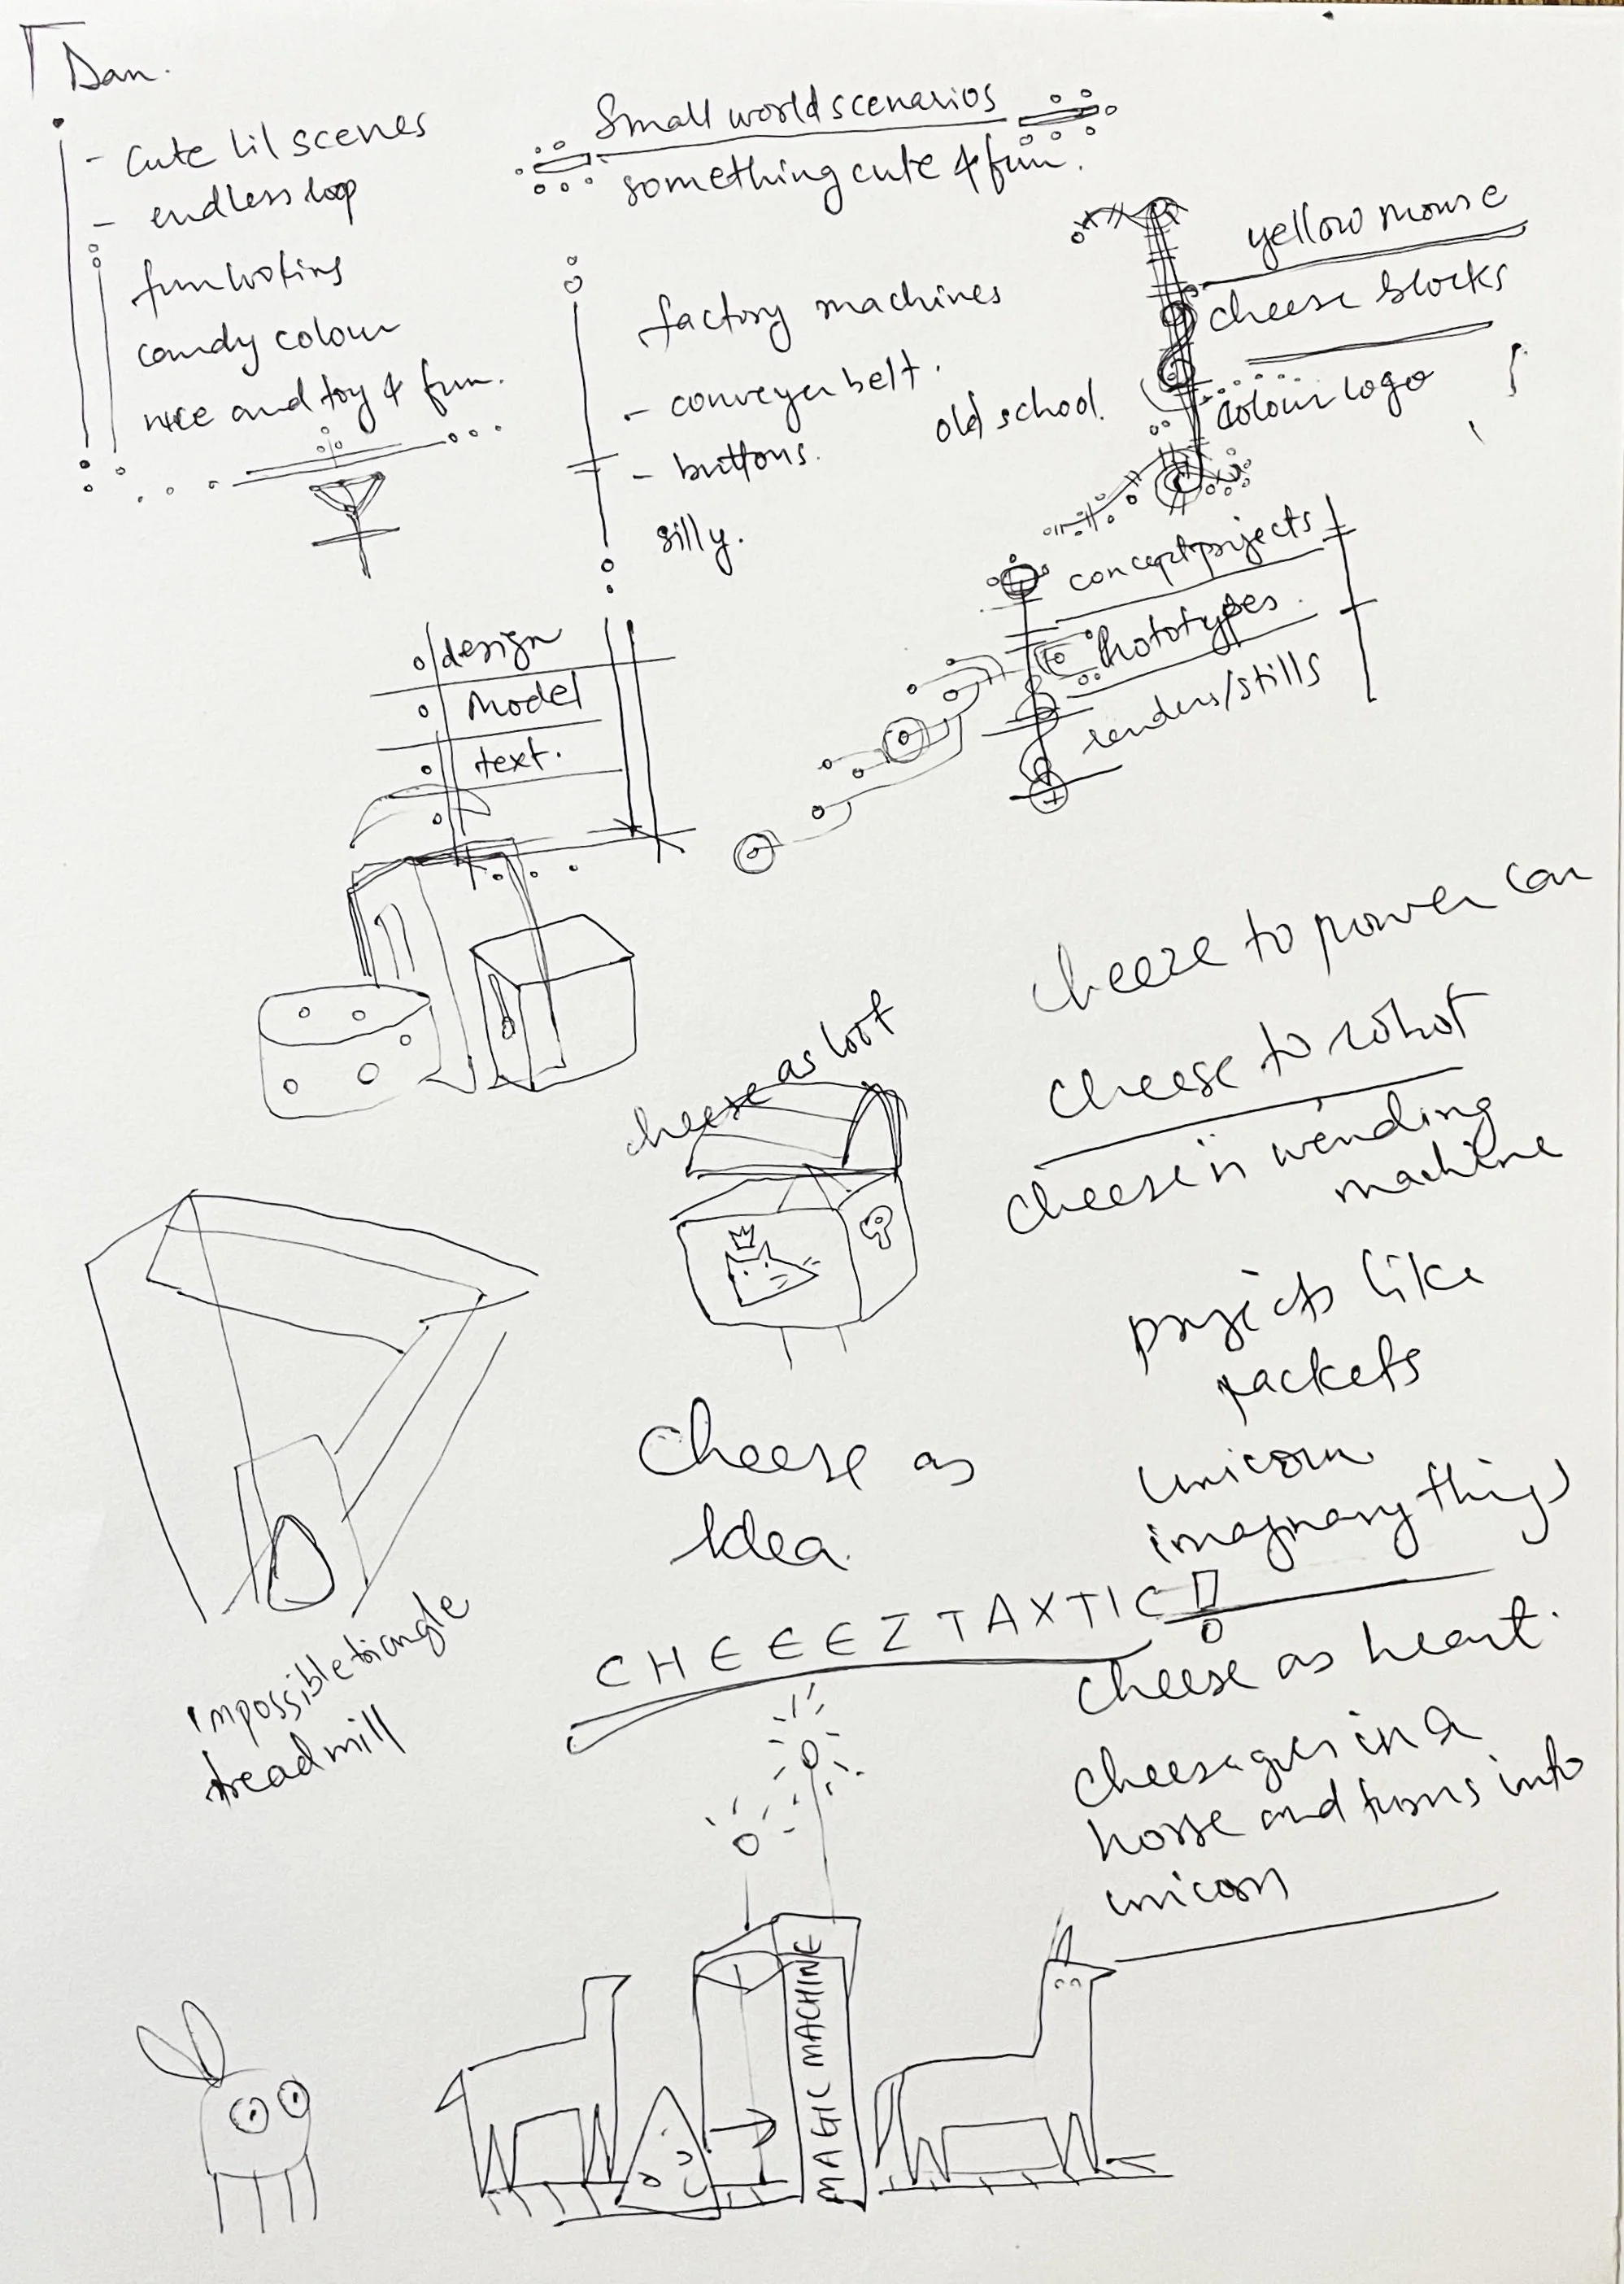 Dan.
- cute lil scenes
- endless loop
fun looking
candy colour
nice and toy & fun.
Small world scenarios
something cute & fun.
factory machines
- conveyer belt.
- buttons.
silly.
old school.
yellow mouse
cheese blocks
colour logo
concept projects
Prototypes.
renders/stills
design
Model
text.
cheeze to power car
cheese to robot
cheese in vending
machine
projects like
packets
unicorn
imaginary things
cheese as loot
cheese as
Idea.
CHEEEZTAXTIC!
impossible triangle
treadmill
cheese as heart.
cheese goes in a
horse and turns into
unicorn
MAGIC MACHINE